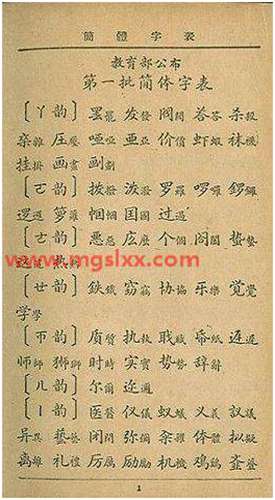 簡體字表
教育部公布
第一批简体字表
〔ㄚ韵〕 罢罷 发發 阀閥 答荅 杀殺
杂雜 压壓 哑啞 亚亞 价價 虾蝦 袜襪
挂掛 画畫 划劃
〔ㄛ韵〕 拨撥 泼潑 罗羅 啰囉 锣鑼
逻邏 箩籮 国國 过過
〔ㄜ韵〕 恶惡 庅麽 个個 阁閣 蛰蟄
www.mgslxx.com
〔ㄝ韵〕 鉄鐵 窃竊 协協 乐樂 觉覺
学學
〔ㄭ韵〕 质質 执執 职職 帋紙 迟遲
师師 狮獅 时時 实實 势勢 辞辭
〔ㄦ韵〕 尔爾 迩邇
〔ㄧ韵〕 医醫 仪儀 蚁蟻 义義 议議
异異 艺藝 闭閉 弥彌 籴糴 体體 拟擬
离離 礼禮 厉厲 励勵 机機 鸡鷄
1